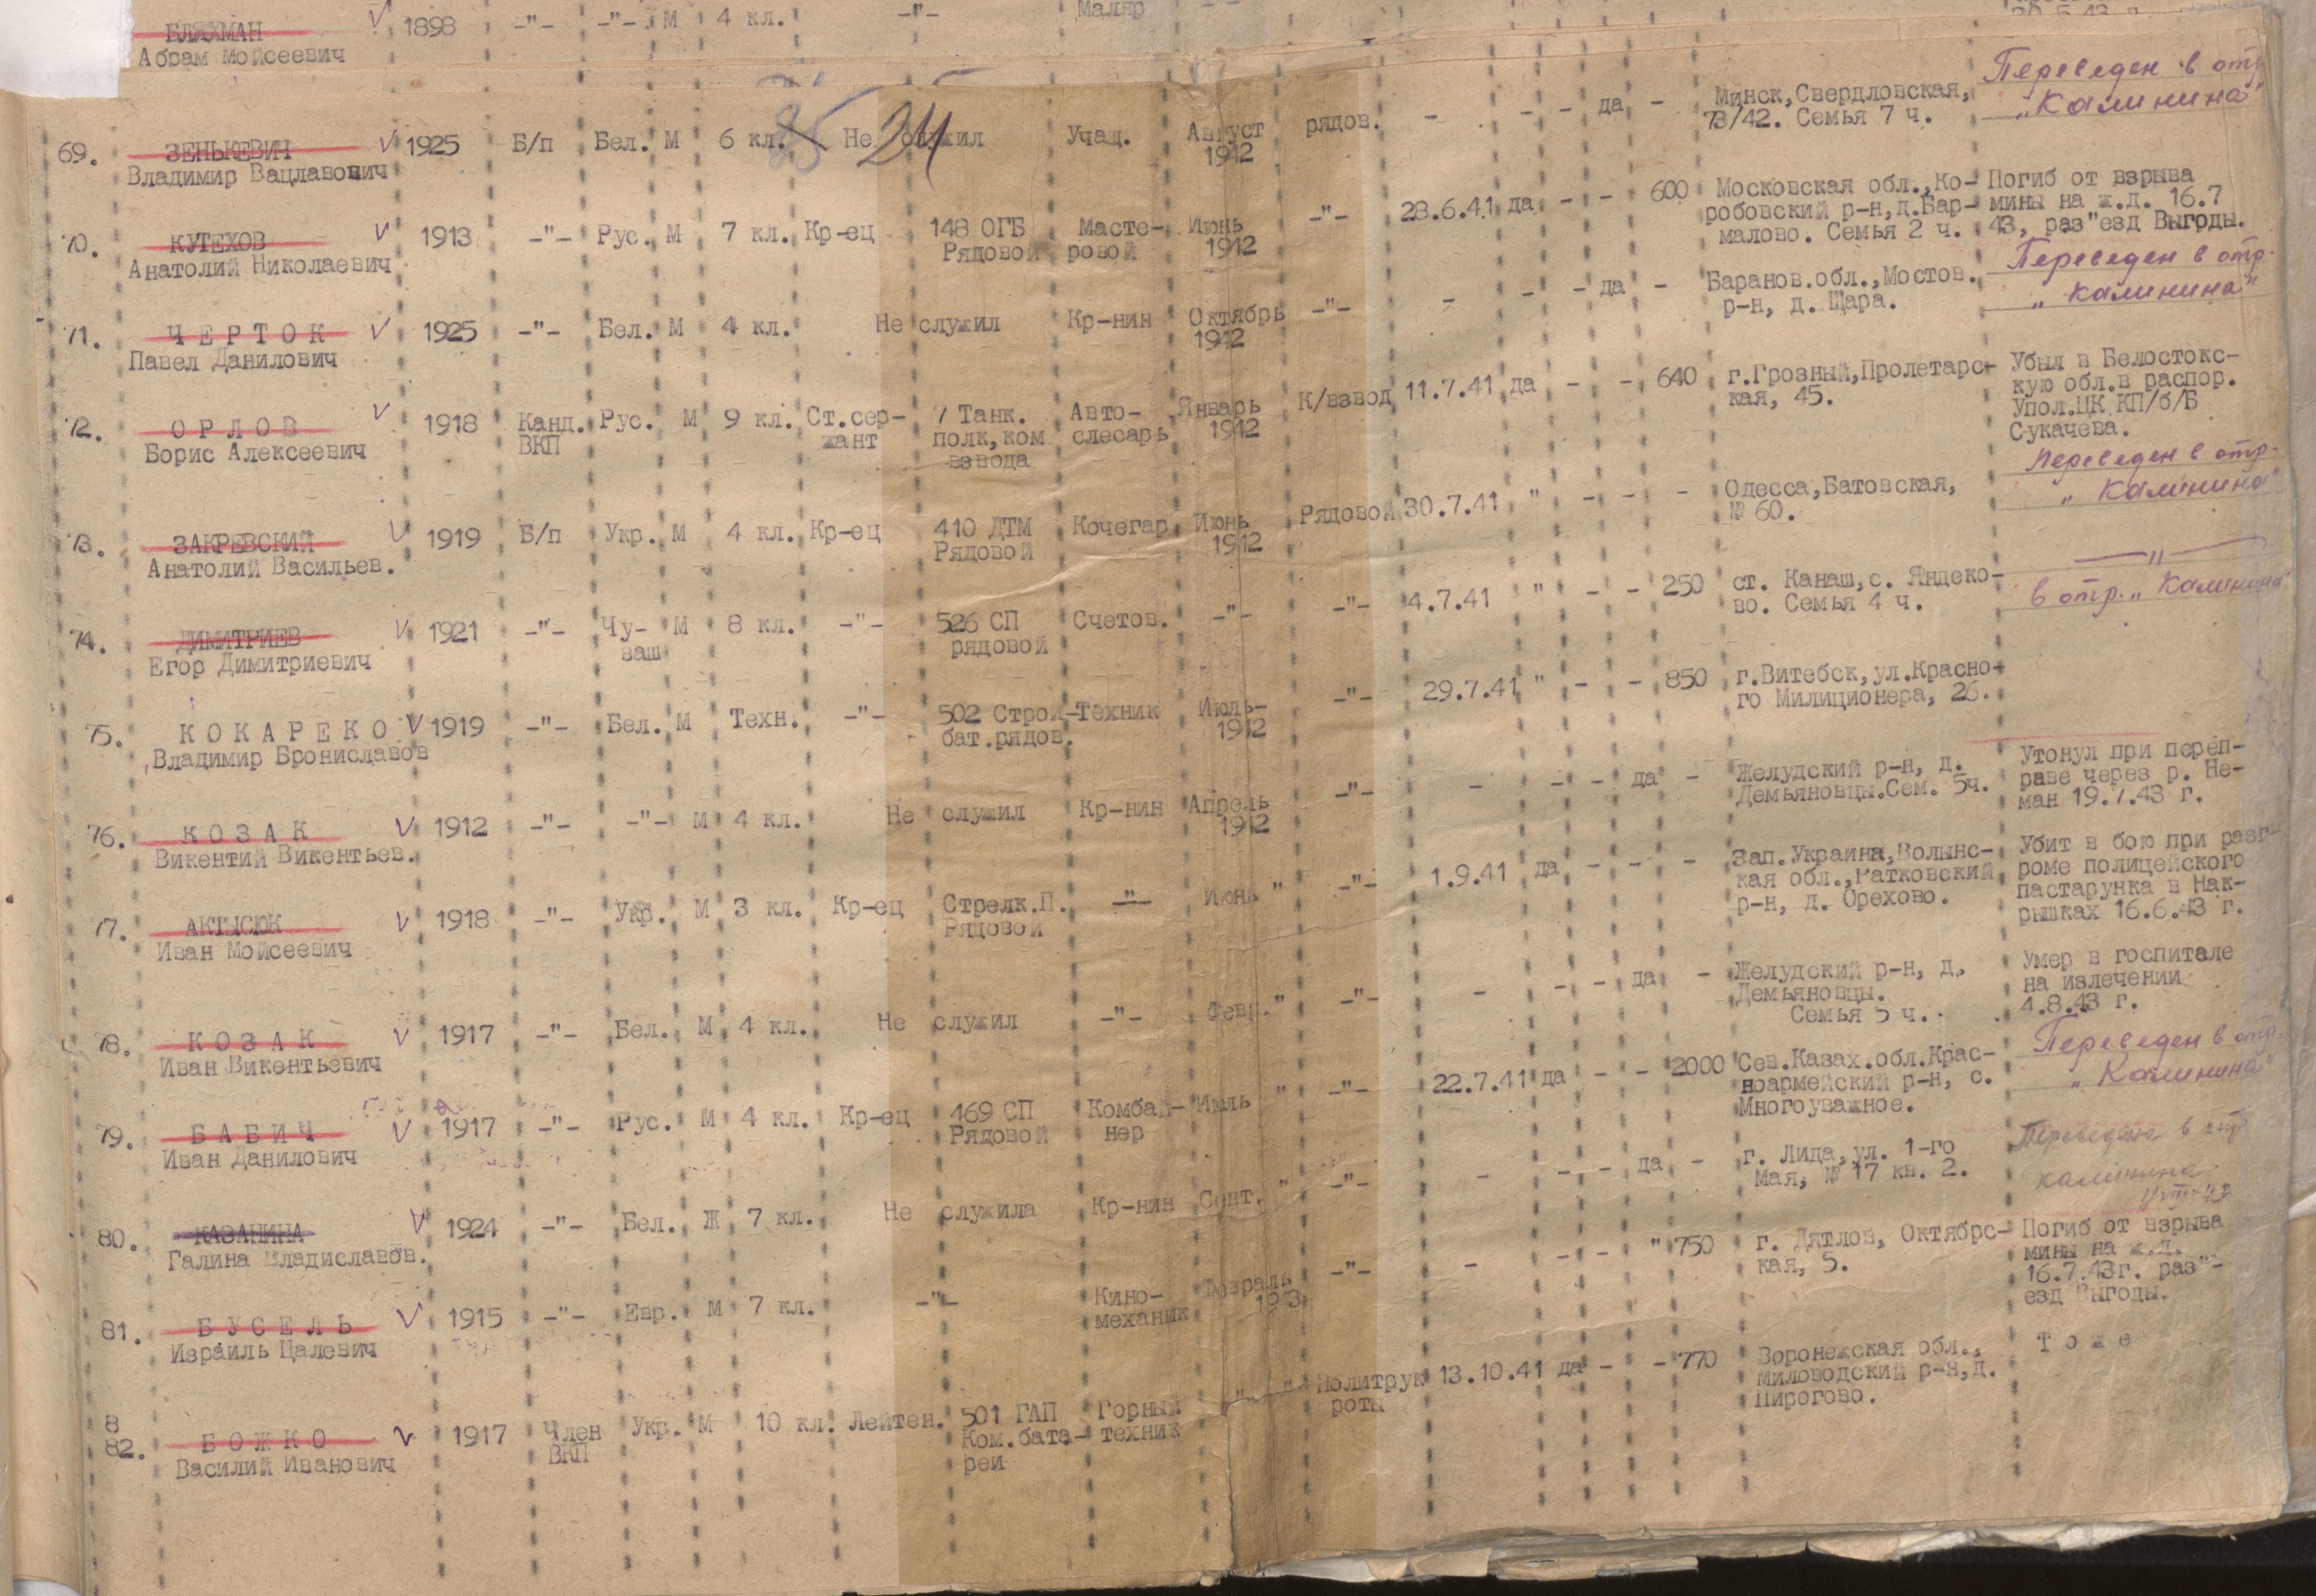 БЛЯХМАН V 1898 -"- -"- М 4 кл. -"- Маляр
Абрам Мойсеевич
24
69. ЗЕНЬКЕВИЧ V 1925 Б/п Бел. М 6 кл. Не служил Учащ. Август рядов. - - - да - Минск,Свердловская, Переведен в отр.
Владимир Вацлавович 1942 73/42. Семья 7 ч. „Калинина"
70. КУТЕХОВ V 1913 -"- Рус. М 7 кл. Кр-ец 148 ОГБ Масте- Июнь -"- 28.6.41 да - - 600 Московская обл.,Ко- Погиб от взрыва
Анатолий Николаевич Рядовой ровой 1942 робовский р-н,д.Вар- мины на ж.д. 16.7
малово. Семья 2 ч. 43, раз"езд Выгоды.
71. ЧЕРТОК V 1925 -"- Бел. М 4 кл. Не служил Кр-нин Октябрь -"- - - - да - Баранов.обл.,Мостов. Переведен в отр.
Павел Данилович 1942 р-н, д. Щара. „Калинина"
72. ОРЛОВ V 1918 Канд. Рус. М 9 кл. Ст.сер- 7 Танк. Авто- Январь К/взвод 11.7.41 да - - 640 г.Грозный,Пролетарс- Убыл в Белостокс-
Борис Алексеевич ВКП жант полк,ком слесарь 1942 кая, 45. кую обл.в распор.
взвода Упол.ЦК КП/б/Б
Сукачева.
73. ЗАКРЕВСКИЙ V 1919 Б/п Укр. М 4 кл. Кр-ец 410 ДТМ Кочегар Июнь Рядовой 30.7.41 " - - - Одесса,Батовская, Переведен в отр.
Анатолий Васильев. Рядовой 1942 № 60. „Калинина"
74. ДИМИТРИЕВ V 1921 -"- Чу- М 8 кл. -"- 526 СП Счетов. -"- -"- 4.7.41 " - - 250 ст. Канаш,с. Яндеко- —"—
Егор Димитриевич ваш рядовой во. Семья 4 ч. в отр. „Калинина"
75. КОКАРЕКО V 1919 -"- Бел. М Техн. -"- 502 Строи- Техник Июль- -"- 29.7.41 " - - 850 г.Витебск,ул.Красно-
Владимир Брониславов бат.рядов. 1942 го Милиционера, 26.
76. КОЗАК V 1912 -"- -"- М 4 кл. Не служил Кр-нин Апрель -"- - - - да - Желудский р-н, д. Утонул при переп-
Викентий Викентьев. 1942 Демьяновцы.Сем. 5ч. раве через р. Не-
ман 19.7.43 г.
77. АКТЫСЮК V 1918 -"- Укр. М 3 кл. Кр-ец Стрелк.П. -"- Июнь " -"- 1.9.41 да - - - Зап.Украина,Волынс- Убит в бою при разг-
Иван Мойсеевич Рядовой кая обл.,Ратковский роме полицейского
р-н, д. Орехово. пастарунка в Нак-
рышках 16.6.43 г.
78. КОЗАК V 1917 -"- Бел. М 4 кл. Не служил -"- Февр. " -"- - - - да - Желудский р-н, д. Умер в госпитале
Иван Викентьевич Демьяновцы. на излечении
Семья 5 ч. 4.8.43 г.
79. БАБИЧ V 1917 -"- Рус. М 4 кл. Кр-ец 469 СП Комбай- Июль " -"- 22.7.41 да - - 2000 Сев.Казах.обл.Крас- Переведен в отр.
Иван Данилович Рядовой нер ноармейский р-н, с. „Калинина"
Многоуважное.
80. КАЗАНИНА V 1924 -"- Бел. Ж 7 кл. Не служила Кр-нин Сент. " -"- - - - да - г. Лида,ул. 1-го Переведена в отр
Галина Владиславов. Мая, № 17 кв. 2. калинина
81. БУСЕЛЬ V 1915 -"- Евр. М 7 кл. -"- Кино- Февраль -"- - - - " 750 г. Дятлов, Октябрс- Погиб от взрыва
Израиль Цалевич механик 1943 кая, 5. мины на ж.д.
16.7.43г. раз"-
езд Выгоды.
8
82. БОЖКО V 1917 Член Укр. М 10 кл. Лейтен. 501 ГАП Горный " " Политрук 13.10.41 да - - 770 Воронежская обл., Тоже
Василий Иванович ВКП Ком.бата- техник роты миловодский р-н,д.
реи Пирогово.